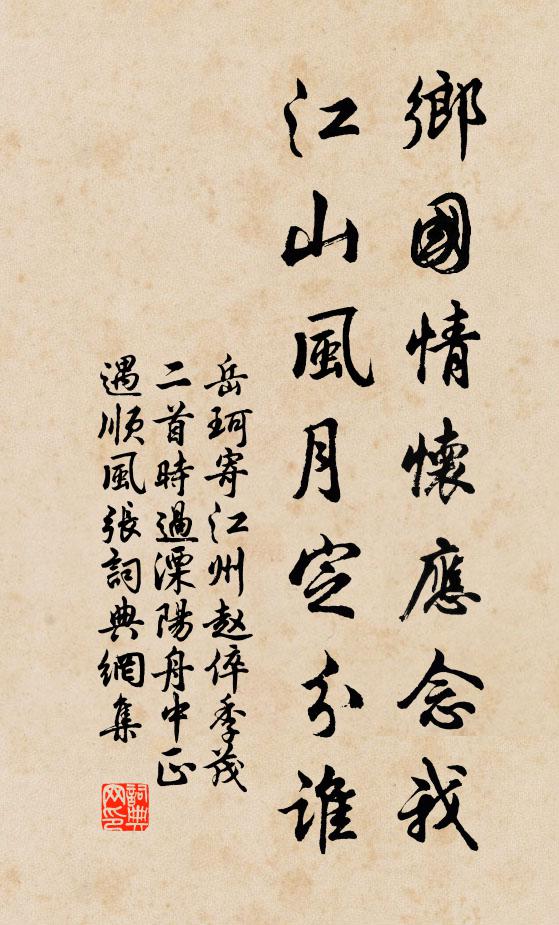 鄉國情懷應念我
江山風月定分誰
岳珂寄江州赵倅季茂
二首時過溧陽舟中正
遇順風張詞典網集
詞典网印